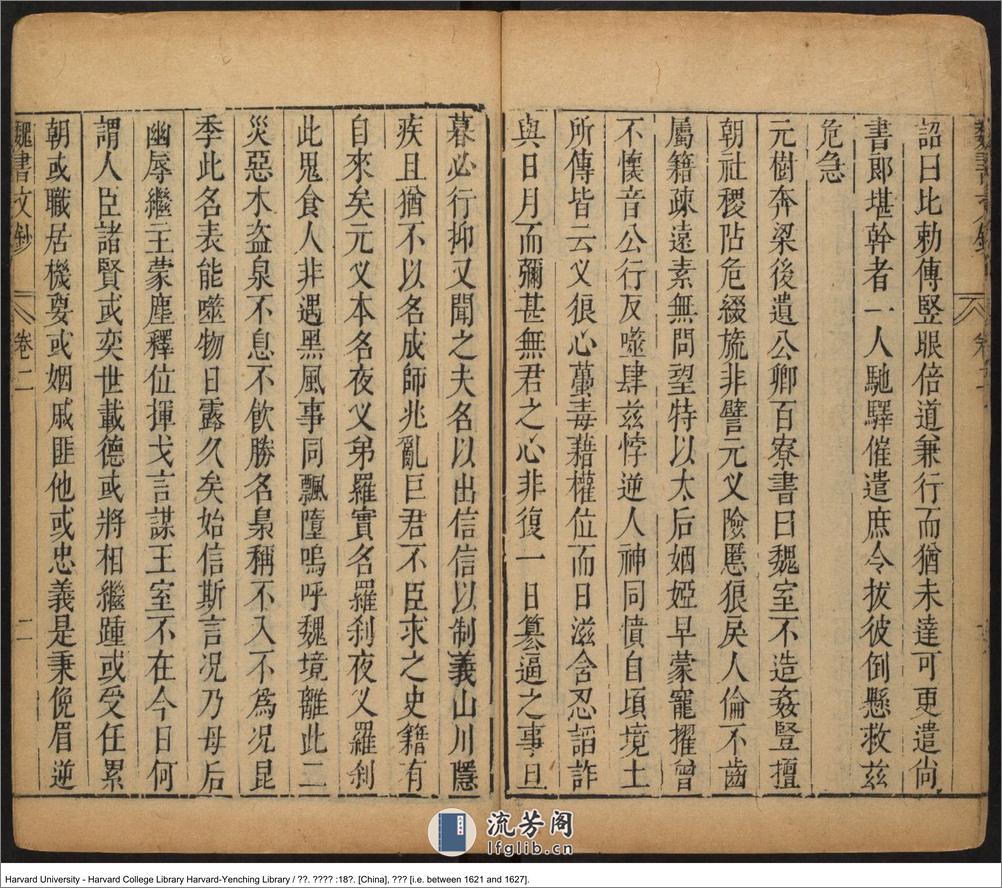 詔曰比勅傳竪眼倍道兼行而猶未達可更遣尚
書郎堪幹者一人馳驛催遣庶令拔彼倒懸救茲
危急
元樹奔梁後遺公卿百寮書曰魏室不造姦豎擅
朝社稷阽危綴旒非譬元义險慝狠戾人倫不齒
屬籍疎遠素無問望特以太后姻婭早蒙寵擢曾
不懷音公行反噬肆兹悖逆人神同憤自頃境土
所傳皆云义狼心蠆毒藉權位而日滋含忍諂詐
與日月而彌甚無君之心非復一日簒逼之事旦
暮必行抑又聞之夫名以出信信以制義山川隱
疾且猶不以名成師兆亂巨君不臣求之史籍有
自來矣元义本名夜义弟羅實名羅刹夜义羅刹
此鬼食人非遇黑風事同飄墮嗚呼魏境離此二
災惡木盜泉不息不飲勝名梟稱不入不為况昆
季此名表能噬物日露久矣始信斯言况乃母后
幽辱繼主蒙塵釋位揮戈言謀王室不在今日何
謂人臣諸賢或奕世載德或將相繼踵或受任累
朝或職居機要或姻戚匪他或忠義是秉俛眉逆
魏書文鈔 卷二 二
流芳阁
lfglib.cn
Harvard University - Harvard College Library Harvard-Yenching Library / ??. ???? :18?. [China], ??? [i.e. between 1621 and 1627].